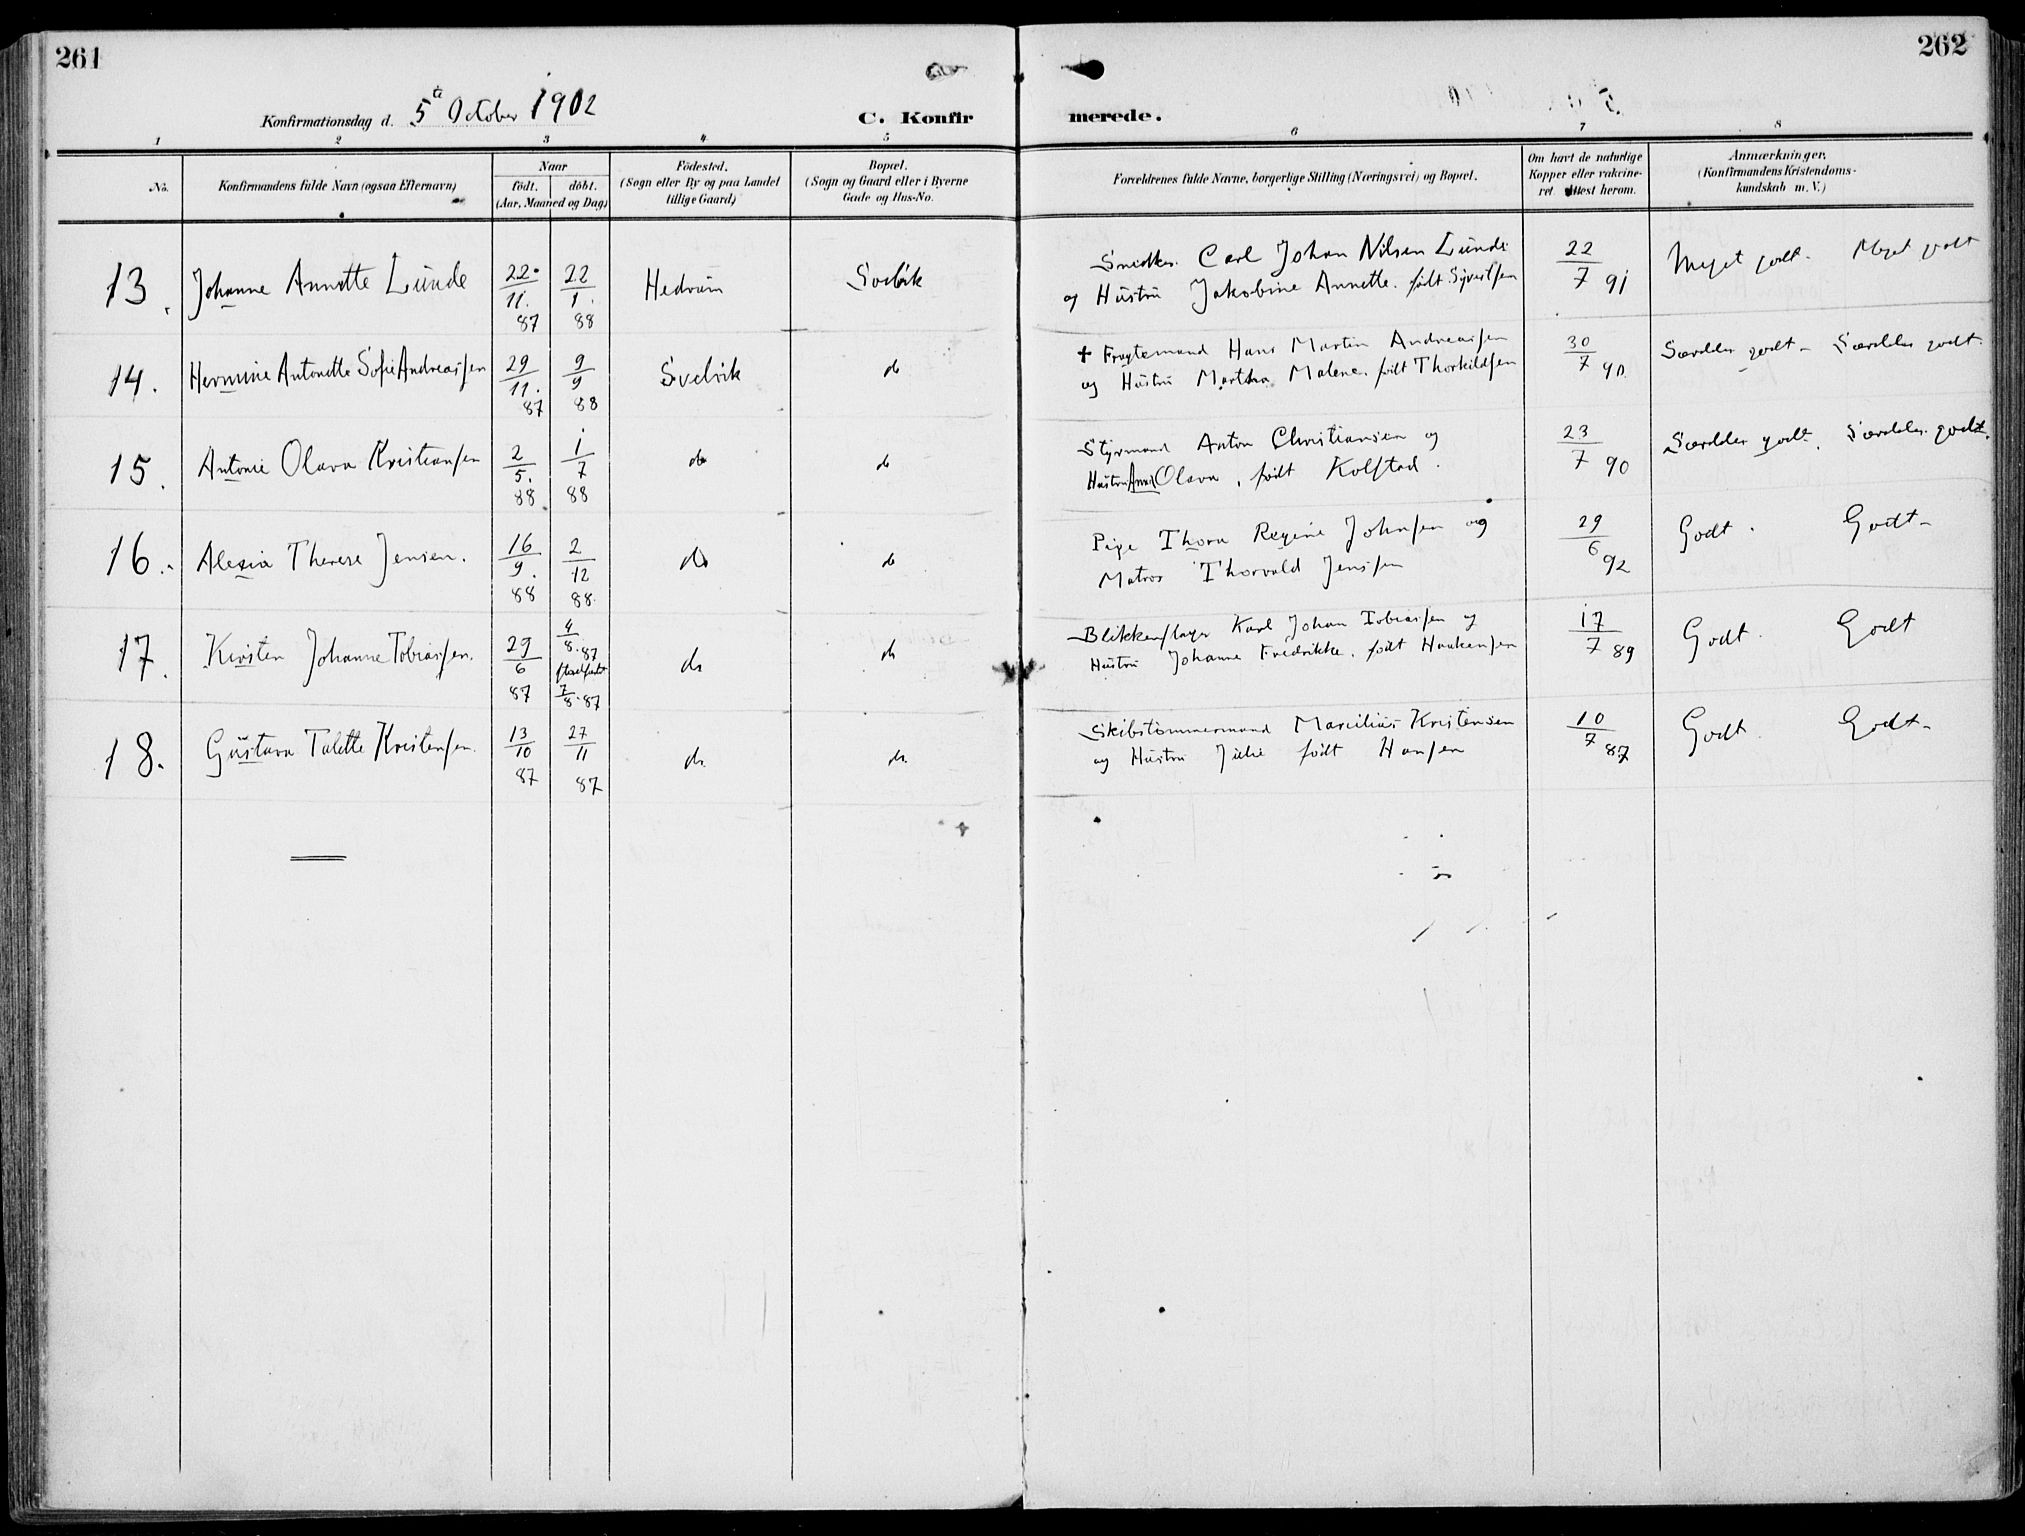 261
262
Konfirmationsdag d. 5te October 1902
C. Konfirmerede.
1 2 3 4 5 6 7 8
No.
Konfirmandens fulde Navn (ogsaa Efternavn)
Naar
födt. döbt.
(Aar, Maaned og Dag)
Födested.
(Sogn eller By og paa Landet
tillige Gaard)
Bopæl.
(Sogn og Gaard eller i Byerne
Gade og Hus-No.
Forældrenes fulde Navne, borgerlige Stilling (Næringsvei) og Bopæl.
Om havt de naturlige
Kopper eller vakcine-
ret. Attest herom.
Anmærkninger.
(Konfirmandens Kristendoms-
kundskab m. V.)
13. Johanne Annette Lunde 22/11. 87 22/1. 88 Hedrum Svelvik
Snedker Carl Johan Nilsen Lunde
og Hustru Jakobine Annette. født Syvertsen
22/7 91 Meget godt. Meget godt
14. Hermine Antonette Sofie Andreassen 29/11. 87 9/9 88 Svelvik do
† Fragtemand Hans Martin Andreassen
og Hustru Martha Malene. født Thorkildsen
30/7 90. Særdeles godt - Særdeles godt.
15. Antonie Olava Kristiansen 2/5. 88 1/7 88 do do
Styrmand Anton Christiansen og
Hustru Anna Olava, født Kolstad.
23/7 90 Særdeles godt. Særdeles godt.
16. Alexia Therese Jensen. 16/9. 88 2/12 88. do do
Pige Thora Regine Johnsen og
Matros Thorvald Jenssen
29/6 92 Godt. Godt-
17. Kirsten Johanne Tobiassen. 29/6 87 4/8. 87 7/8. 87 do do
Blikkenslager Karl Johan Tobiassen og
Hustru Johanne Fredrikke. født Haakensen
17/7 89 Godt. Godt
18. Gustava Talette Kristensen. 13/10 87 27/11 87 do. do.
Skibstömmermand Marcilius Kristensen
og Hustru Julie født Hansen
10/7 87 Godt. Godt-